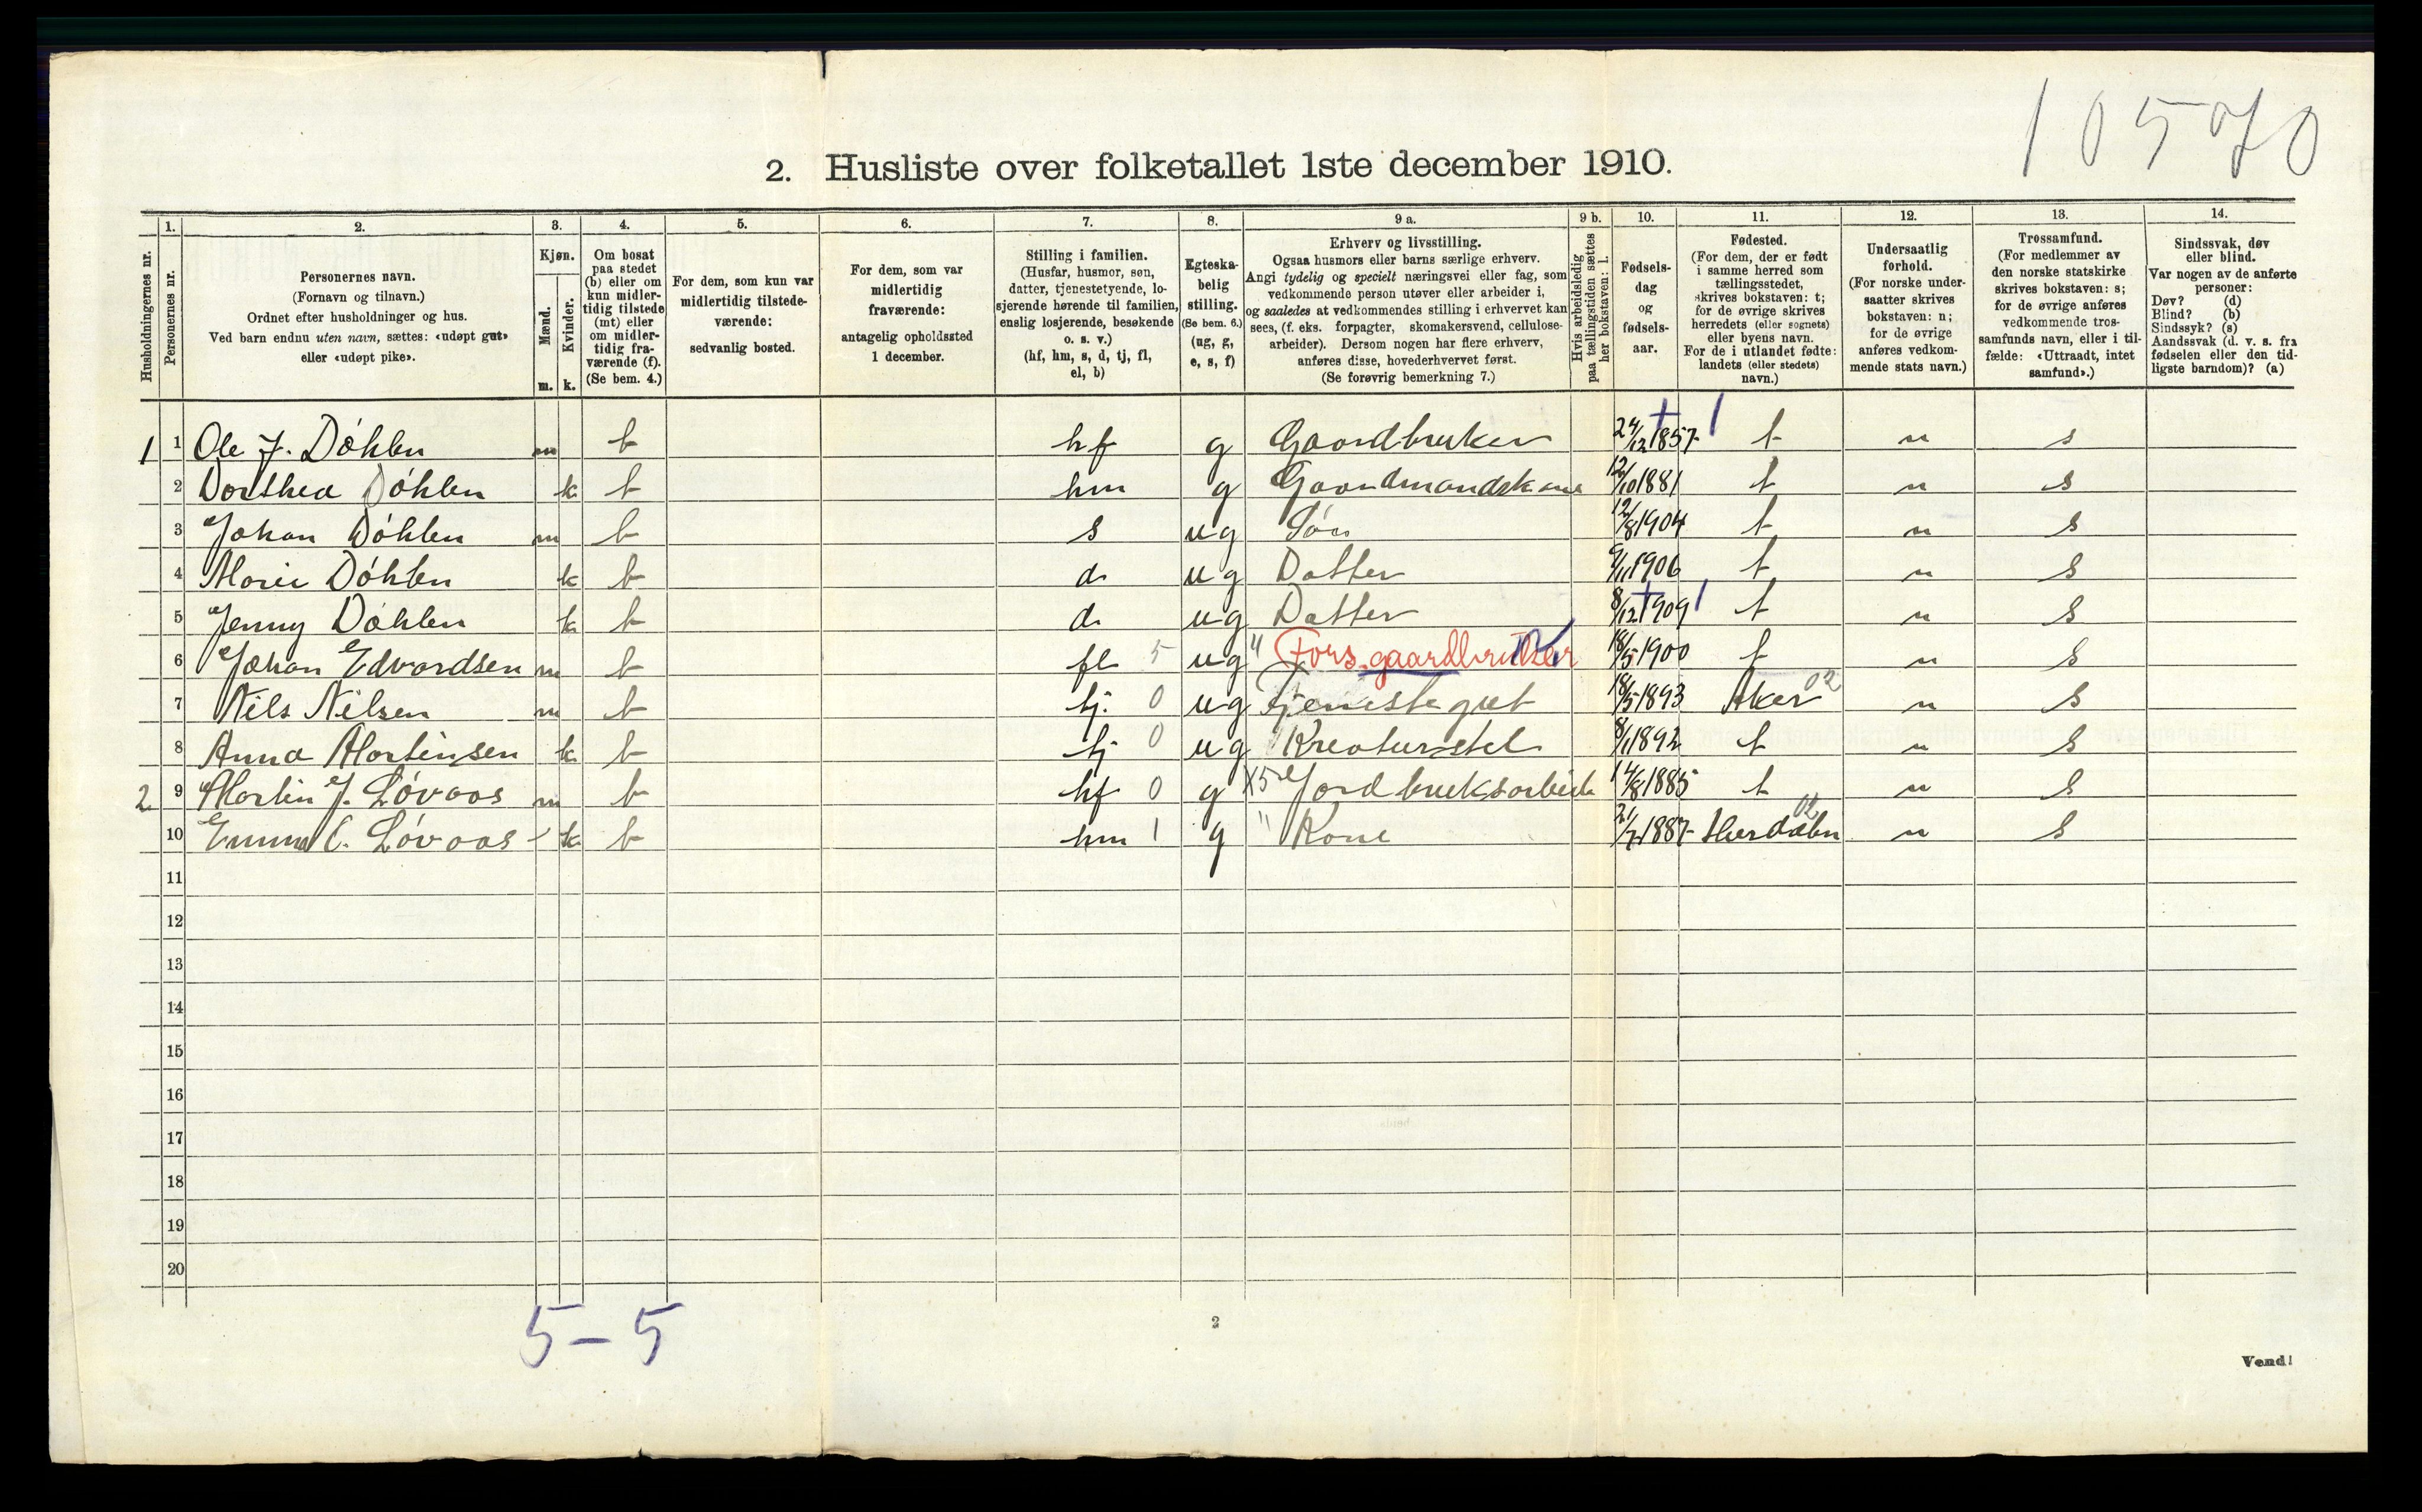 10570
2. Husliste over folketallet 1ste december 1910.
Husholdningernes nr.
1. Personernes nr.
2. Personernes navn.
(Fornavn og tilnavn.)
Ordnet efter husholdninger og hus.
Ved barn endnu uten navn, sættes: «udøpt gut»
eller «udøpt pike».
3. Kjøn.
Mænd. m.
Kvinder. k.
4. Om bosat
paa stedet
(b) eller om
kun midler-
tidig tilstede
(mt) eller
om midler-
tidig fra-
værende (f).
(Se bem. 4.)
5. For dem, som kun var
midlertidig tilstede-
værende:
sedvanlig bosted.
6. For dem, som var
midlertidig
fraværende:
antagelig opholdssted
1 december.
7. Stilling i familien.
(Husfar, husmor, søn,
datter, tjenestetyende, lo-
sjerende hørende til familien,
enslig losjerende, besøkende
o. s. v.)
(hf, hm, s, d, tj, fl,
el, b)
8. Egteska-
belig
stilling.
(Se bem. 6.)
(ug, g,
e, s, f)
9 a. Erhverv og livsstilling.
Ogsaa husmors eller barns særlige erhverv.
Angi tydelig og specielt næringsvei eller fag, som
vedkommende person utøver eller arbeider i,
og saaledes at vedkommendes stilling i erhvervet kan
sees, (f. eks. forpagter, skomakersvend, cellulose-
arbeider). Dersom nogen har flere erhverv,
anføres disse, hovederhvervet først.
(Se forøvrig bemerkning 7.)
9 b. Hvis arbeidsledig
paa tællingstiden sættes
her bokstaven: l.
10. Fødsels-
dag
og
fødsels-
aar.
11. Fødested.
(For dem, der er født
i samme herred som
tællingsstedet,
skrives bokstaven: t;
for de øvrige skrives
herredets (eller sognets)
eller byens navn.
For de i utlandet fødte:
landets (eller stedets)
navn.)
12. Undersaatlig
forhold.
(For norske under-
saatter skrives
bokstaven: n;
for de øvrige
anføres vedkom-
mende stats navn.)
13. Trossamfund.
(For medlemmer av
den norske statskirke
skrives bokstaven: s;
for de øvrige anføres
vedkommende tros-
samfunds navn, eller i til-
fælde: «Uttraadt, intet
samfund».)
14. Sindssvak, døv
eller blind.
Var nogen av de anførte
personer:
Døv? (d)
Blind? (b)
Sindssyk? (s)
Aandssvak (d. v. s. fra
fødselen eller den tid-
ligste barndom)? (a)
1 1 Ole J. Döhlen m b hf g Gaardbruker 24/12 1857 t n s
2 Dorthea Döhlen k b hm g Gaardmandskone 12/10 1881 t n s
3 Johan Döhlen m b s ug Sön 12/8 1904 t n s
4 Marie Döhlen k b d ug Datter 9/11 1906 t n s
5 Jenny Döhlen k b d ug Datter 8/12 1909 t n s
6 Johan Edvardsen m b fl 5 ug " Fors. gaardbruker 18/5 1900 t n s
7 Nils Nilsen m b tj. 0 ug Tjenestegut 18/5 1893 Aker 02 n s
8 Anna Martinsen k b tj 0 ug Kreaturstel 8/1 1892 t n s
2 9 Martin J. Lövaas m b hf 0 g X5 Jordbruksarbeide 14/8 1885 t n s
10 Emma C. Lövaas k b hm 1 g " Kone 21/7 1887 Hurdalen 02 n s
11
12
13
14
15
16
17
18
19
20
5 - 5
2
Vend!